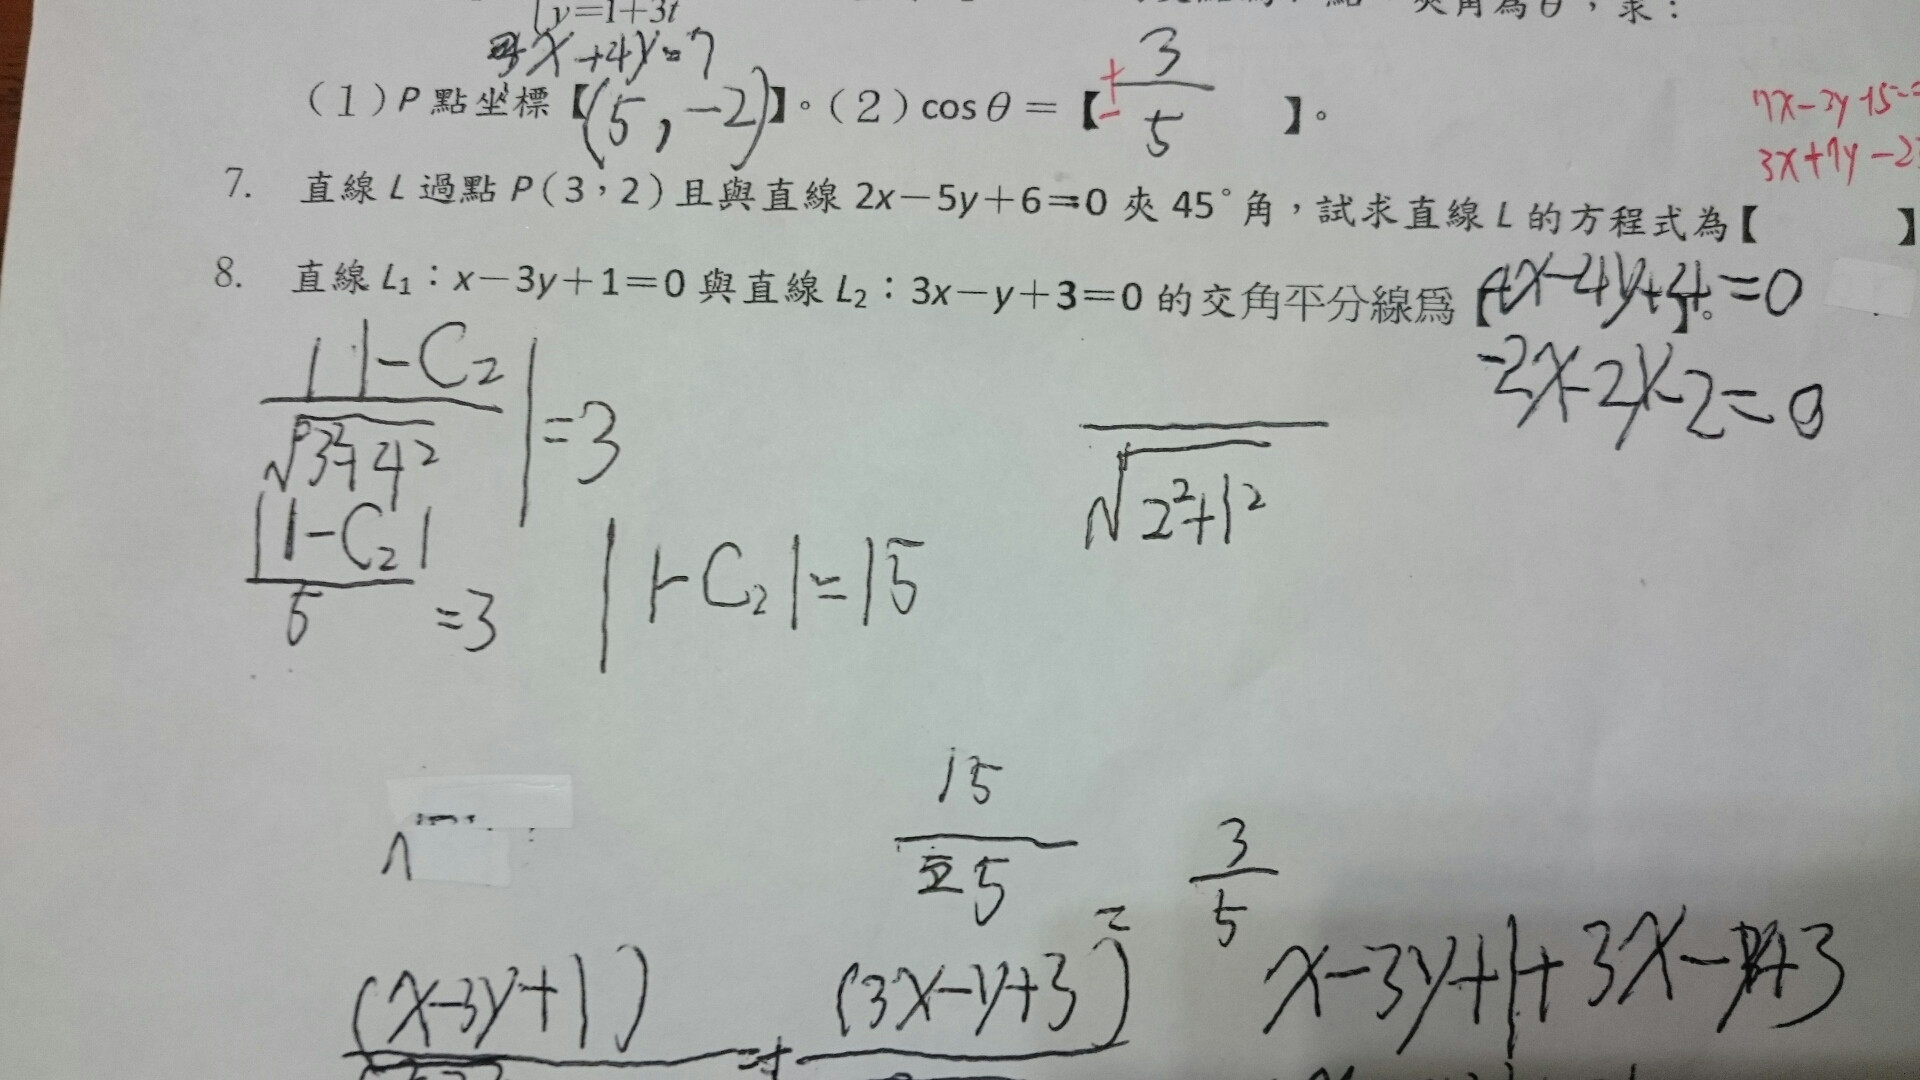 y=1+3t
角為θ，求：
x+4y=7
(1)P點坐標【(5,-2)】。(2)cosθ=【±3/5】。
7x-3y+5=
3x+7y-2
7. 直線L過點P(3，2)且與直線2x－5y＋6＝0夾45°角，試求直線L的方程式為【 】
8. 直線L₁：x－3y＋1＝0與直線L₂：3x－y＋3＝0的交角平分線為【4x-4y+4=0】。
-2x-2y-2=0
|1-C₂| / √3²+4² =3
√2²+1²
|1-C₂| / 5 =3
|1-C₂|=15
15
5
3/5
(x-3y+1) =+ (3x-y+3)
x-3y+1+3x-y+3